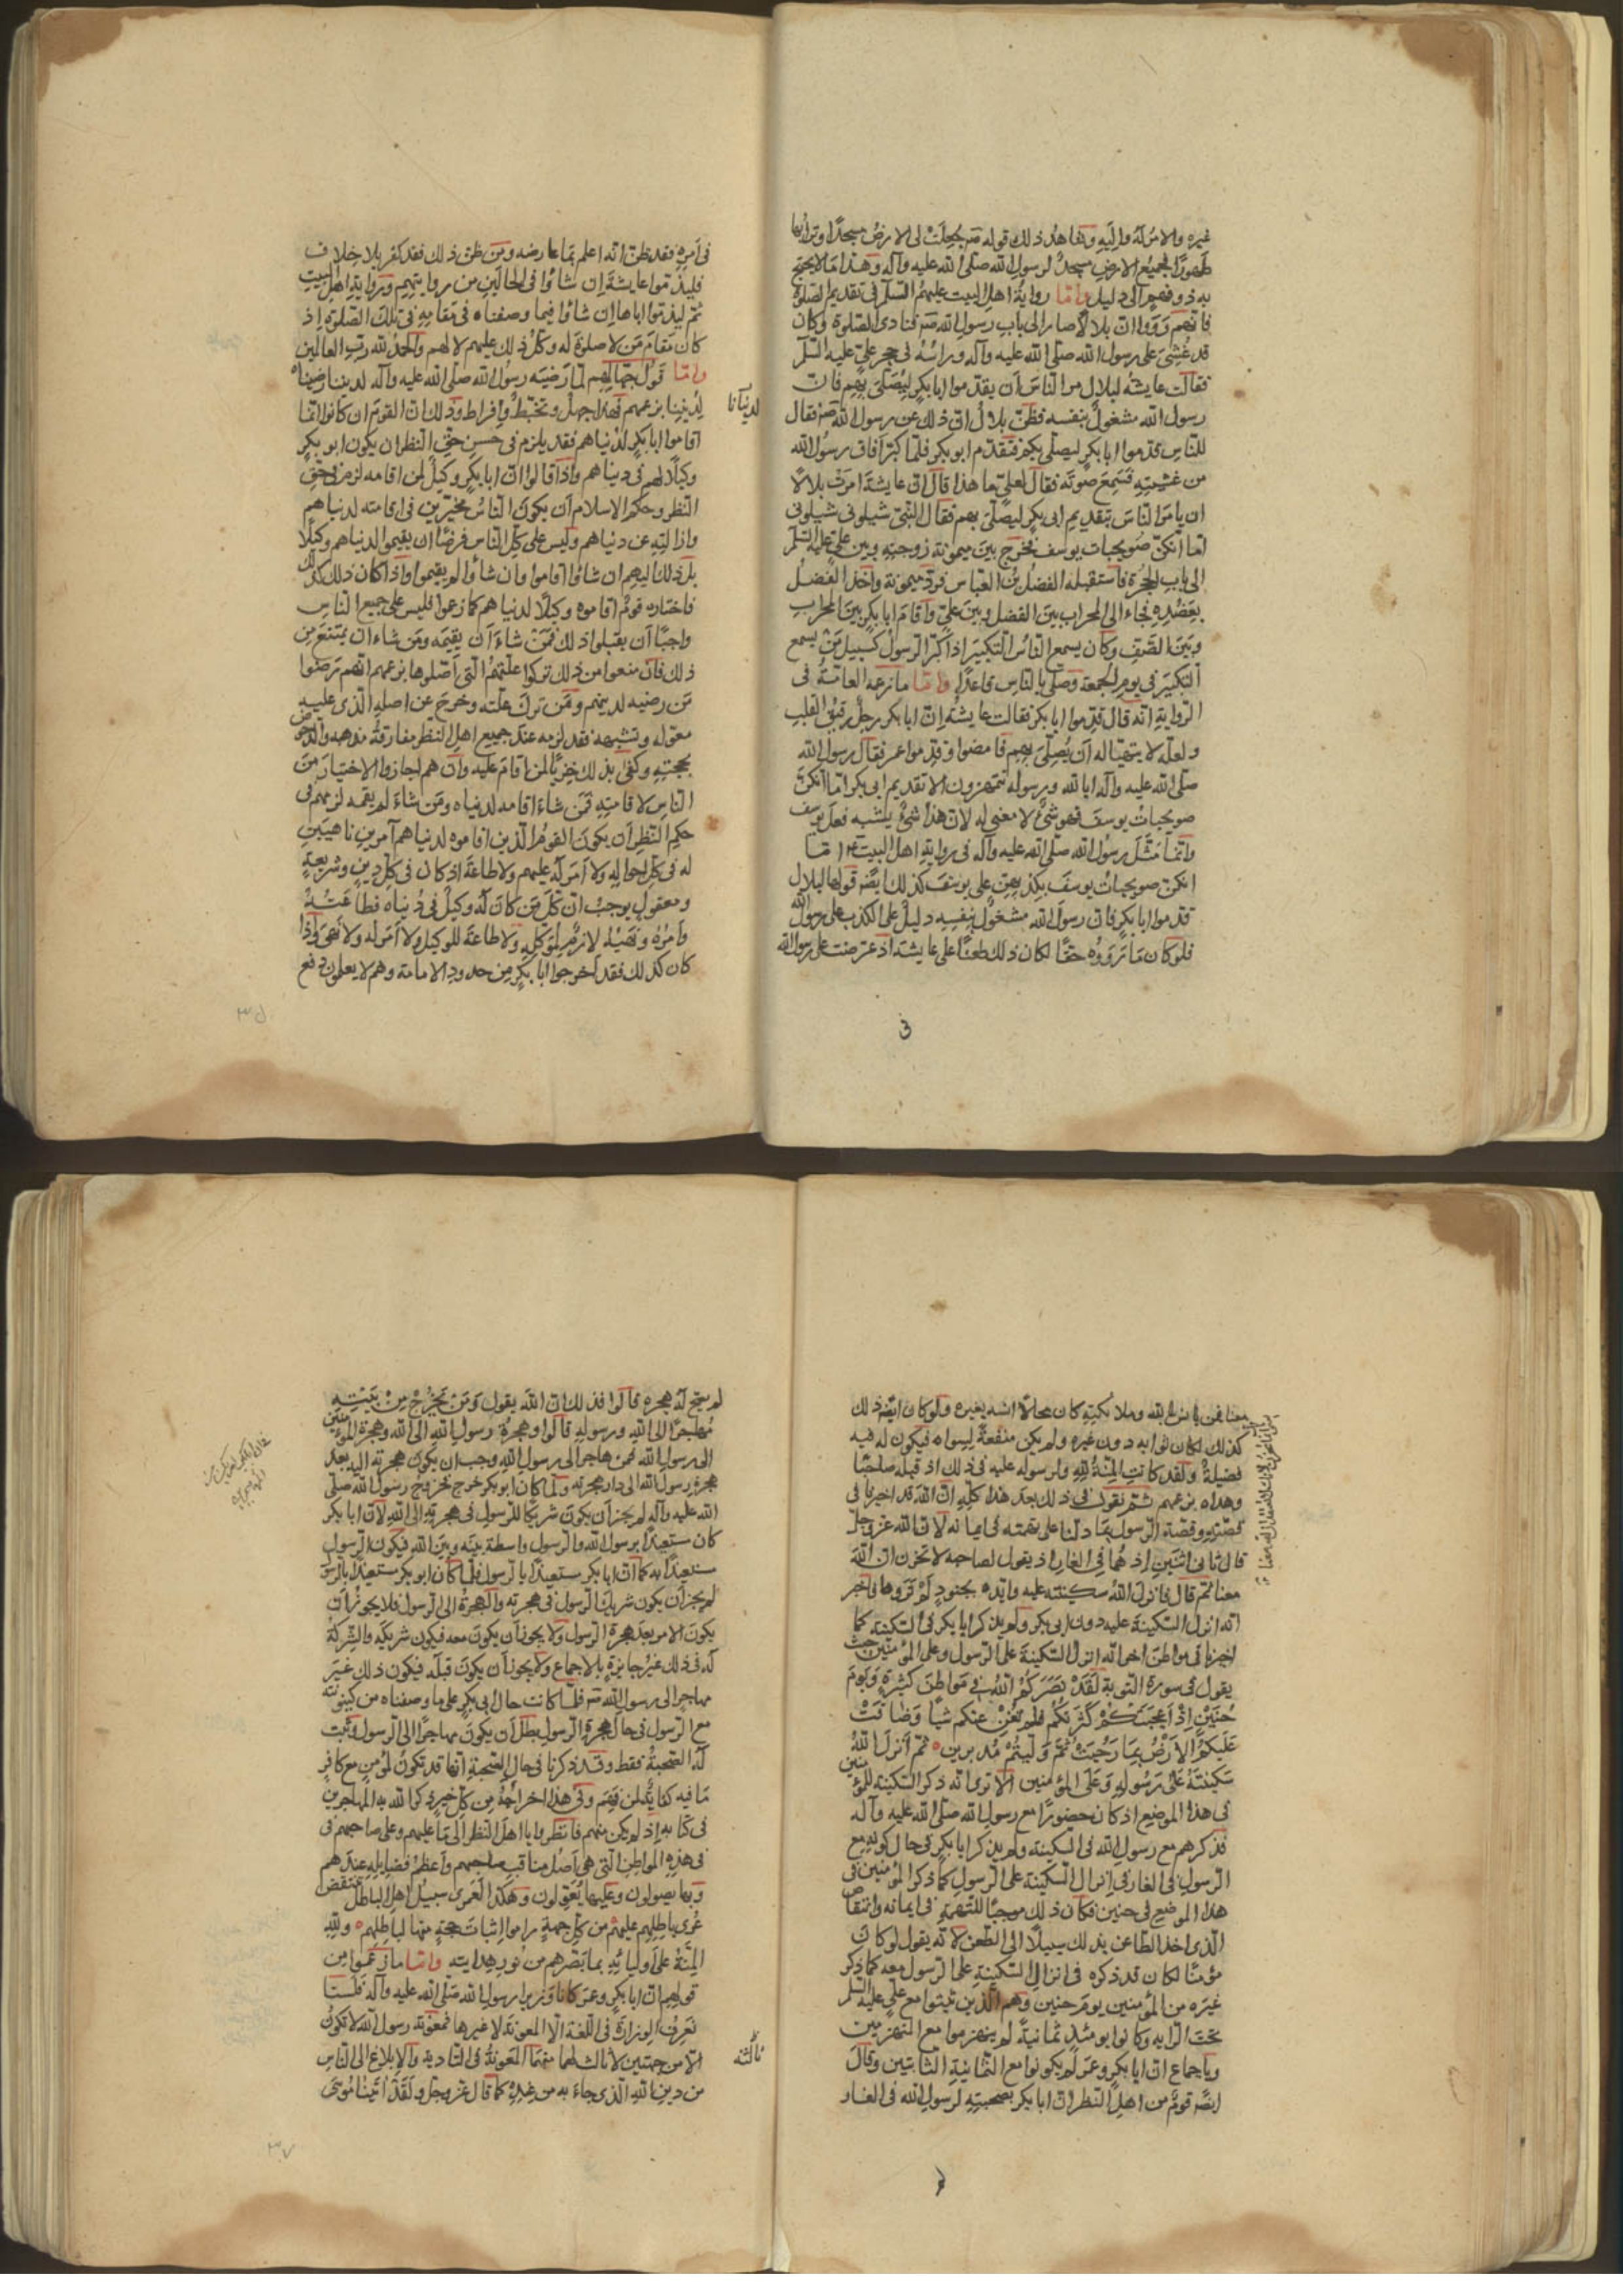 غيره والامر له واليه وشاهد ذلك قوله صم جعلت لى الارض مسجدا وترابها
طهورا فجميع الارض مسجد لرسول الله صلى الله عليه وآله وهذا ما لا يحتج
به ذو فهم الى دليل واما رواية اهل البيت عليهم السلم فى تقديم الصلوة
فانهم رووا ان بلالا صار الى باب رسول الله صم فنادى الصلوة وكان
قد غشى على رسول الله صلى الله عليه وآله ورأسه فى حجر على عليه السلم
فقالت عايشة لبلال مر الناس ان يقدموا ابا بكر ليصلى بهم فان
رسول الله مشغول بنفسه فظن بلال ان ذلك عن رسول الله صم فقال
للناس قدموا ابا بكر ليصلى بكم فتقدم ابو بكر فلما كبر افاق رسول الله
من غشيته فسمع صوته فقال لعلى ما هذا قال ان عايشة امرت بلالا
ان يامر الناس بتقديم ابى بكر ليصلى بهم فقال النبى شيلونى شيلونى
اما انكن صويحبات يوسف فخرج بين ميمونة زوجته وبين على عليه السلم
الى باب الحجرة فاستقبله الفضل بن العباس فرد ميمونة واخذ الفضل
بعضده فجاء الى المحراب بين الفضل وبين على واقام ابا بكر بين المحراب
وبين الصف وكان يسمع الناس التكبير اذا كبر الرسول كسبيل من يسمع
التكبير فى يوم الجمعة وصلى بالناس قاعدا واما ما تزعمه العامة فى
الرواية انه قال قدموا ابا بكر فقالت عايشة ان ابا بكر رجل رقيق القلب
ولعله لا يتهيا له ان يصلى بهم فامضوا وقدموا عمر فقال رسول الله
صلى الله عليه وآله ابا لله ورسوله تتمهزون الا تقديم ابى بكر اما انكن
صويحبات يوسف فهو شئ لا معنى له لان هذا شئ يشبه فعل يوسف
وانما مثل رسول الله صلى الله عليه وآله فى رواية اهل البيت ع م اما
انكن صويحبات يوسف بكذبهن على يوسف كذلك ايضه قولها لبلال
قدموا ابا بكر فان رسول الله مشغول بنفسه دليل على الكذب على رسول الله
فلو كان ما رووه حقا لكان ذلك طعنا على عايشة اذ اعترضت على رسول الله
فى امره فقد ظن انه اعلم بما عارضه ومن ظن ذلك فقد كفر بلا خلاف
فليذموا عايشة ان شاؤا فى الحالين من روايتهم ورواية اهل البيت
ثم ليذموا اباها ان شاؤا فيما وصفناه فى مقامه فى تلك الصلوة اذ
كان مقام من لا صلوة له وكل ذلك عليهم لا لهم والحمد لله رب العالمين
واما قول جهالهم لما رضيه رسول الله صلى الله عليه وآله لديننا رضيناه
لديننا بزعمهم فهذا جهل وتخبط وافراط وذلك ان القوم ان كانوا انما
لدنيانا
اقاموا ابا بكر لدنياهم فقد يلزم فى حسن حق النظر ان يكون ابو بكر
وكيلا لهم فى دنياهم واذا قالوا ان ابا بكر وكيل لمن اقامه لزمهم فى حق
النظر وحكم الاسلام ان يكون الناس مخيرين فى اقامته لدنياهم
وازالته عن دنياهم وليس على كل الناس فرضا ان يقيموا لدنياهم وكيلا
بل ذلك اليهم ان شاؤا اقاموا وان شاؤا لم يقيموا واذا كان ذلك كذلك
فاختاره قوم اقاموه وكيلا لدنياهم كما زعموا فليس على جميع الناس
واجبا ان يقبلوا ذلك فمن شاء ان يقيمه ومن شاء ان يمتنع من
ذلك فان منعوا من ذلك تركوا علتهم التى اصلوها بزعمهم انهم رضوا
من رضيه لدينهم ومن ترك علته وخرج عن اصله الذى عليه
معوله وتشبهه فقد لزمه عند جميع اهل النظر مفارقة مذهبه والدحوض
بحجته وكفى بذلك خزيا لمن اقام عليه وان هم اجازوا الاختيار من
الناس لاقامته فمن شاء اقامه لدنياه ومن شاء لم يقمه لزمهم فى
حكم النظر ان يكون القوم الذين اقاموه لدنياهم آمرين ناهيين
له فى كل احواله ولا امر له عليهم ولا طاعة اذ كان فى كل دين وشريعة
ومعقول يوجب ان كل من كان له وكيل فى دنياه فطاعته
وامره ونهيه لازم لموكله ولا طاعة للوكيل ولا امر له ولا نهى واذا
كان كذلك فقد اخرجوا ابا بكر من حدود الامامة وهم لا يعلمون دفع
معنا فمن يا لله وملائكته كان محالا اشبه بغيره ولو كان ايضه ذلك
كذلك لكان ثوابه دون غيره ولم يكن منفعة لسواه فيكون له فيه
فضيلة ولقد كانت المنة لله ولرسوله عليه فى ذلك اذ قبله صاحبا
وهداه بزعمهم ثم نقول فى ذلك بعد هذا كله ان الله قد اخبرنا فى
قصته وقصة الرسول بما دلنا على تهمته فى ايمانه لان الله عز وجل
قال ثانى اثنين اذ هما فى الغار اذ يقول لصاحبه لا تحزن ان الله
معنا ثم قال فانزل الله سكينته عليه وايده بجنود لم تروها فاخبر
انه انزل السكينة عليه دون ابى بكر ولم يذكر ابا بكر فى السكينة كما
اخبرنا فى مواطن اخر انه انزل السكينة على الرسول وعلى المؤمنين حيث
يقول فى سورة التوبة لقد نصركم الله فى مواطن كثيرة ويوم
حنين اذ اعجبتكم كثرتكم فلم تغن عنكم شيا وضاقت
عليكم الارض بما رحبت ثم وليتم مدبرين ثم انزل الله
سكينته على رسوله وعلى المؤمنين الا ترى انه ذكر السكينة للمؤمنين
فى هذا الموضع اذ كان حضورا مع رسول الله صلى الله عليه وآله
فذكرهم مع رسول الله فى السكينة ولم يذكر ابا بكر فى حال كونه مع
الرسول فى الغار فى انزال السكينة على الرسول كما ذكر المؤمنين فى
هذا الموضع فى حنين فكان ذلك موجبا للتهمة فى ايمانه وانتقاص
الذى اخذ الطاعن بذلك سبيلا الى الطعن لانه يقول لو كان
مؤمنا لكان قد ذكره فى انزال السكينة على الرسول معه كما ذكر
غيره من المؤمنين يوم حنين وهم الذين ثبتوا مع على عليه السلم
تحت الراية وكانوا يومئذ ثمانية لم ينهزموا مع المنهزمين
وباجماع ان ابا بكر وعمر لم يكونوا مع الثمانية الثابتين وقال
ايضه قوم من اهل النظر ان ابا بكر بصحبته لرسول الله فى الغار
لم يصح له هجرة قالوا فذلك ان الله يقول ومن يخرج من بيته
مهاجرا الى الله ورسوله قالوا وهجرة رسول الله الى الله وهجرة المؤمنين
الى رسول الله فمن هاجر الى رسول الله وجب ان يكون هجرته اليه بعد
هجرة رسول الله الى دار هجرته ولما كان ابو بكر خرج بخروج رسول الله صلى
الله عليه وآله لم يجز ان يكون شريكا للرسول فى هجرته الى الله لان ابا بكر
كان مستعبدا برسول الله والرسول واسطة بينه وبين الله فيكون الرسول
مستعبدا به كما ان ابا بكر مستعبدا بالرسول فلما كان ابو بكر مستعبدا بالرسول
لم يجز ان يكون شريك الرسول فى هجرته والهجرة الى الرسول فلا يجوز ان
يكون الا من بعد هجرة الرسول ولا يجوز ان يكون معه فيكون شريكه والشركة
له فى ذلك غير جايزة بالاجماع ولا يجوز ان يكون قبله فيكون ذلك غير
مهاجر الى رسول الله صم فلما كانت حال ابى بكر على ما وصفناه من كينونته
مع الرسول فى حال هجرة الرسول بطل ان يكون مهاجرا الى الرسول وثبت
له الصحبة فقط وقد ذكرنا فى حال الصحبة انها قد تكون لمؤمن مع كافر
ما فيه كفاية لمن فهم وفى هذا اخراجه من كل خير ذكر الله به المهاجرين
فى كتابه اذ لم يكن منهم فانظروا يا اهل النظر الى ما عليهم وعلى صاحبهم فى
فى هذه المواطن التى هى اصل مناقب صاحبهم واعظم فضايله عندهم
وبها يصولون وعليها يعولون وهكذا لعمرى سبيل اهل الباطل تنقض
عرى باطلهم عليهم من كل جهة راموا اثبات حجة منها لباطلهم ولله
المنة على اوليائه بما بصرهم من نور هدايته واما ما زعموا من
قولهم ان ابا بكر وعمر كانا وزيرا رسول الله صلى الله عليه وآله فلسنا
نعرف الوزارة فى اللغة الا المعونة لا غيرها فمعونة رسول الله لا تكون
الا من جهتين لا ثالث لهما منهما المعونة فى التادية والابلاغ الى الناس
ثالثه
من دين الله الذى جاء به من عنده كما قال عز وجل ولقد اتينا موسى
٣٧